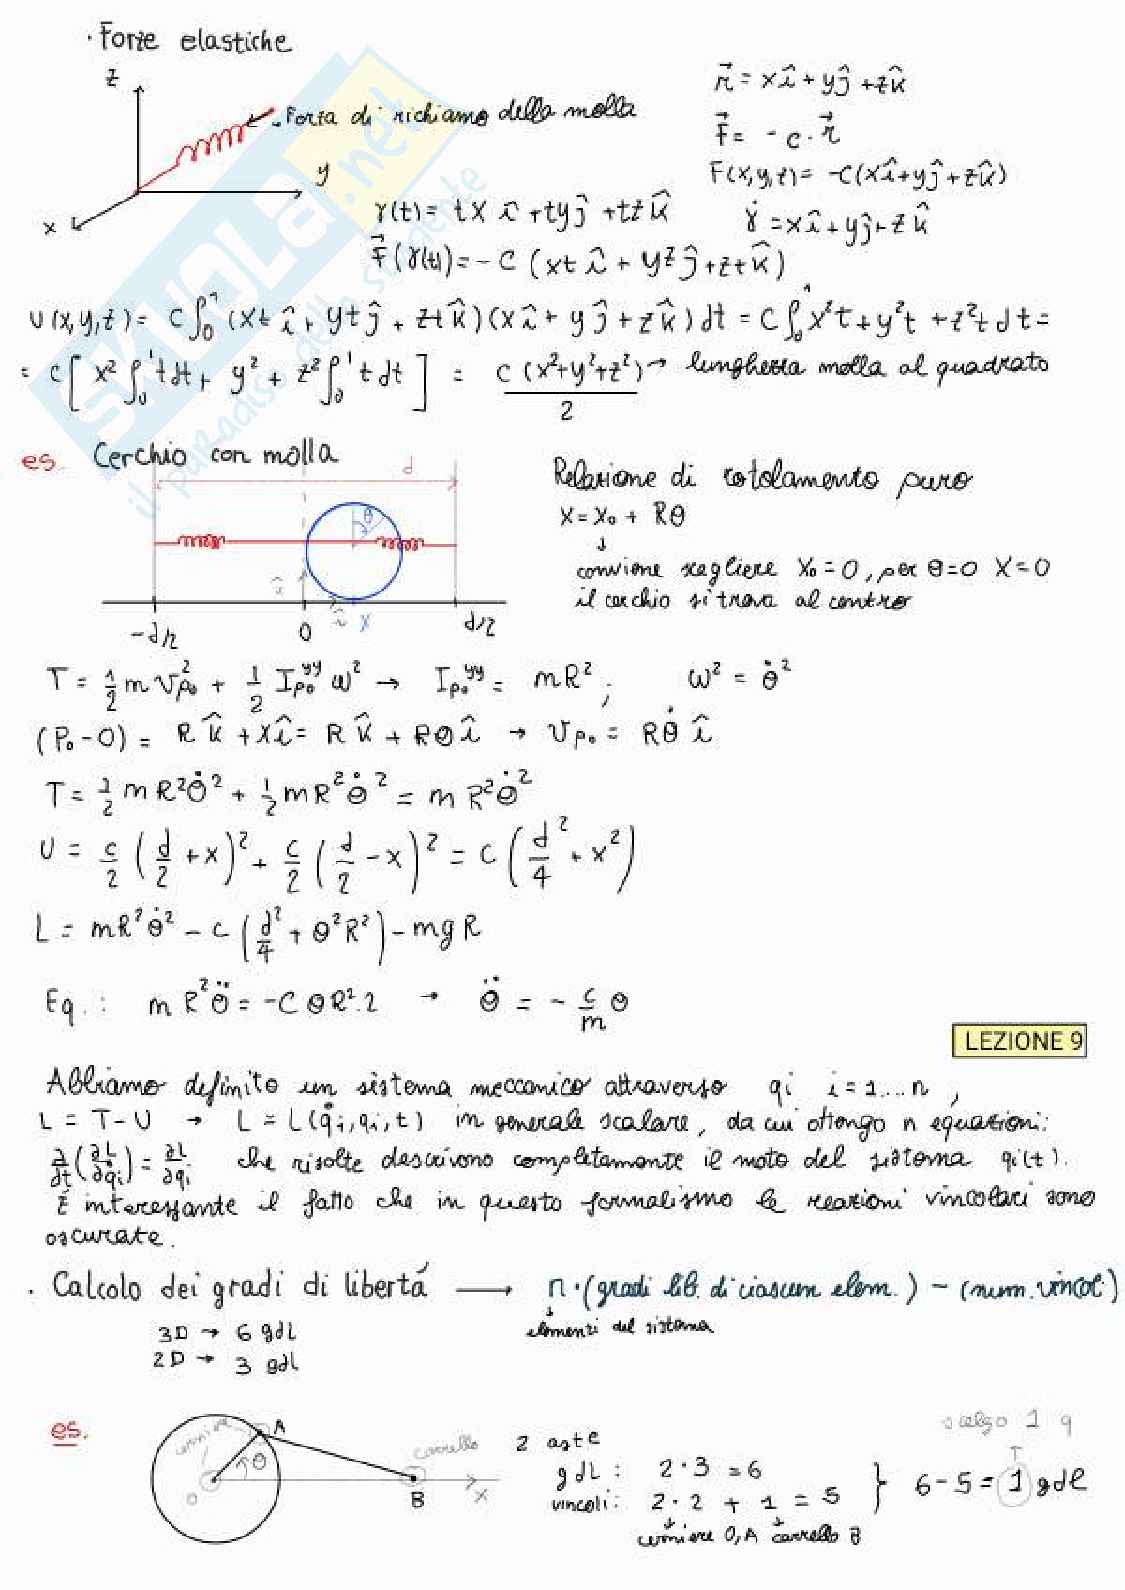 · Forze elastiche
z
Forza di richiamo della molla
y
x
r⃗ = xî + yĵ + zk̂
F⃗ = - c · r⃗
F(x,y,z) = -c(xî + yĵ + zk̂)
γ(t) = txî + tyĵ + tzk̂
γ̇ = xî + yĵ + zk̂
F⃗(γ(t)) = - c (xtî + yzĵ + ztk̂)
U(x,y,z) = c∫₀¹ (xtî + ytĵ + ztk̂)(xî + yĵ + zk̂) dt = c∫₀¹ x²t + y²t + z²t dt =
= c[ x² ∫₀¹ t dt + y² + z² ∫₀¹ t dt ] = c (x²+y²+z²) / 2 → lunghezza molla al quadrato
es. Cerchio con molla
d
θ
x
-d/2
0
d/2
Relazione di rotolamento puro
x = x₀ + Rθ
↓
conviene scegliere x₀ = 0, per θ=0 x=0
il cerchio si trova al centro
T = 1/2 m v²_P₀ + 1/2 I_P₀^yy ω² → I_P₀^yy = mR² ; ω² = θ̇²
(P₀ - O) = Rk̂ + xî = Rk̂ + Rθî → v_P₀ = Rθ̇ î
T = 1/2 m R²θ̇² + 1/2 m R²θ̇² = m R²θ̇²
U = c/2 (d/2 + x)² + c/2 (d/2 - x)² = c (d²/4 + x²)
L = mR²θ̇² - c (d²/4 + θ²R²) - mgR
Eq.: m R²θ̈ = -cθR²·2 → θ̈ = - c/m θ
LEZIONE 9
Abbiamo definito un sistema meccanico attraverso qi i=1....n ,
L = T-U → L = L(q̇i, qi, t) in generale scalare, da cui ottengo n equazioni:
∂/∂t (∂L/∂q̇i) = ∂L/∂qi che risolte descrivono completamente il moto del sistema qi(t).
È interessante il fatto che in questo formalismo le reazioni vincolari sono
oscurate.
· Calcolo dei gradi di libertá → n·(gradi lib. di ciascum elem.) - (num. vincoli)
↓
elementi del sistema
3D → 6 gdl
2D → 3 gdl
es.
cerniere
A
θ
O
carrello
B
x
2 aste
gdl : 2·3 = 6
vincoli: 2·2 + 1 = 5
cerniere O, A carrello B
} 6-5 = 1 gdl
scelgo 1 q